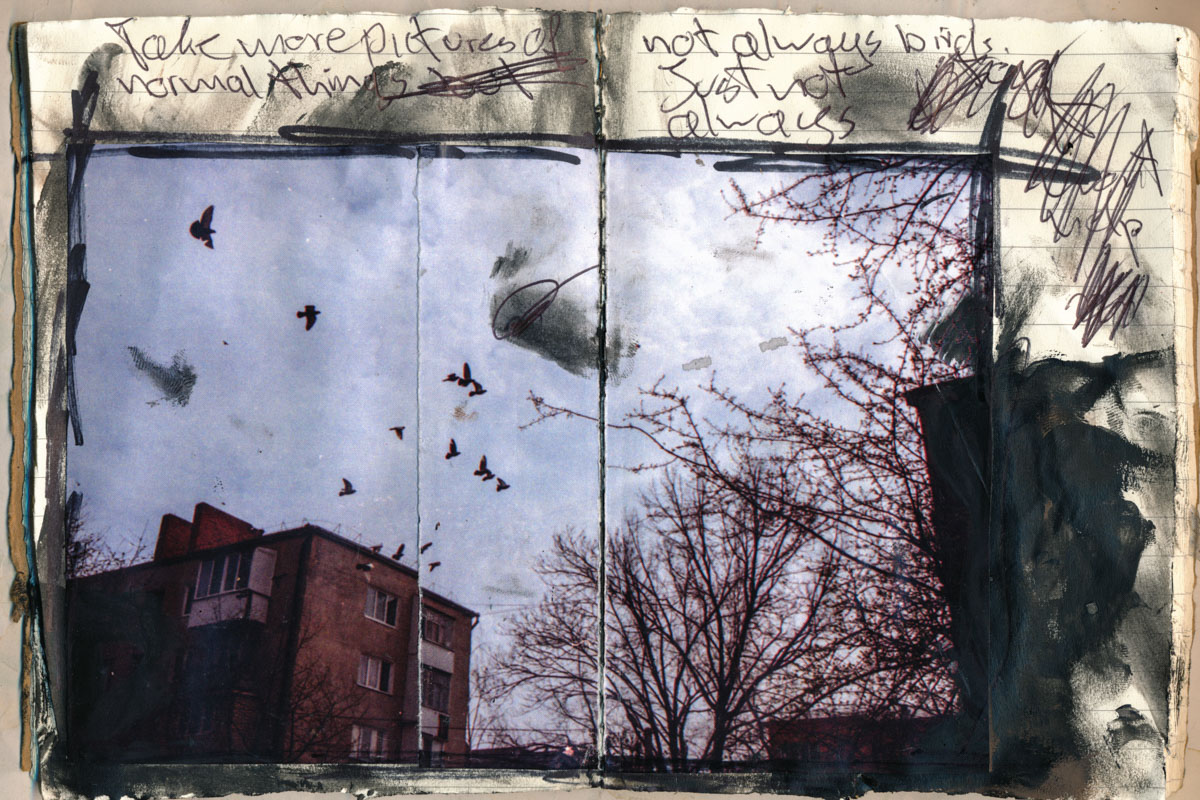 Take more pictures of
normal things
not always birds.
Just not
always